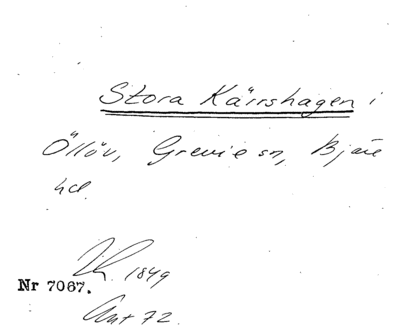 Stora Kärrshagen i
Öllöv, Grevie sn, Bjäre
hd.
1849
Nr 7067.
Ant 72.